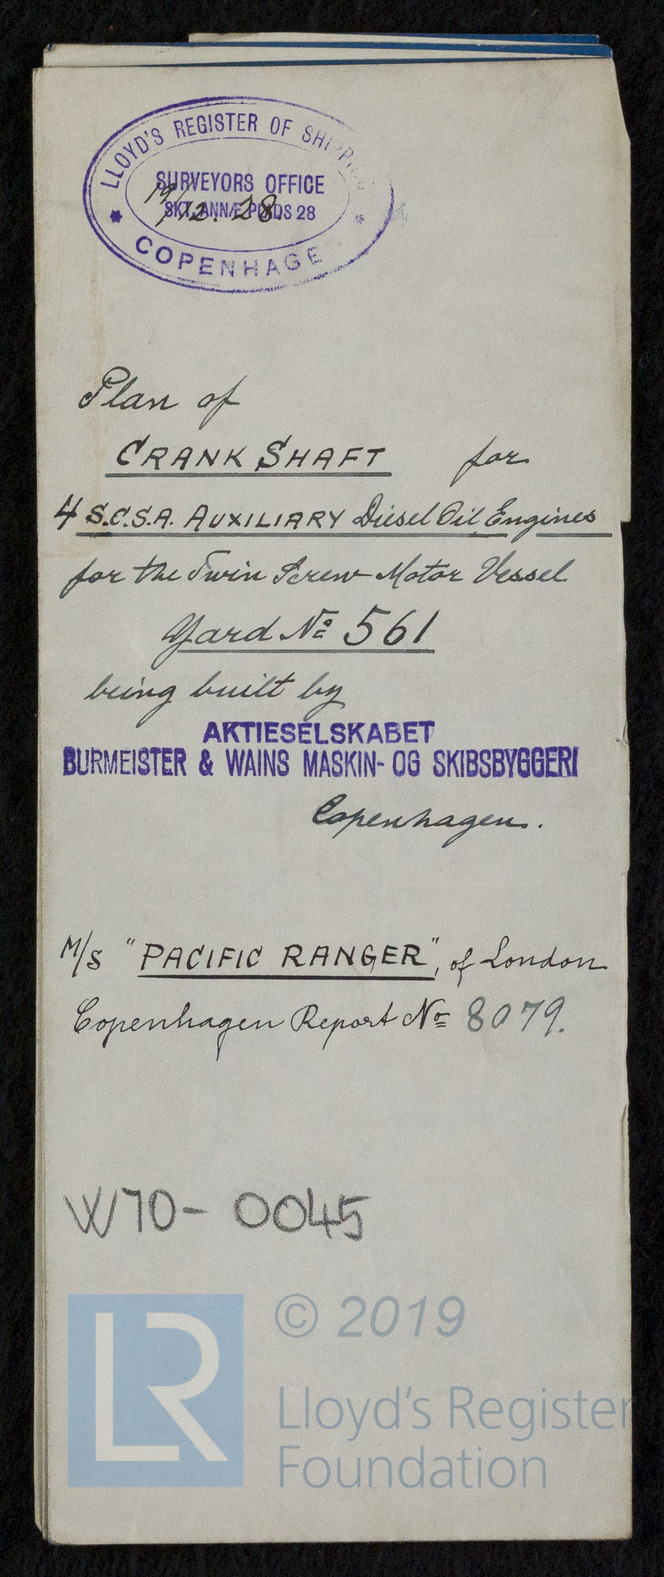 LLOYD'S REGISTER OF SHIPPING
SURVEYORS OFFICE
19/12.28.
SKT. ANNÆ PLADS 28
COPENHAGEN
Plan of
CRANK SHAFT for
4 S.C.S.A. AUXILIARY Diesel Oil Engines
for the Twin Screw Motor Vessel
Yard No 561
being built by
AKTIESELSKABET
BURMEISTER & WAINS MASKIN- OG SKIBSBYGGERI
Copenhagen.
M/s "PACIFIC RANGER", of London
Copenhagen Report No 8079.
W70- 0045
LR
© 2019
Lloyd's Register
Foundation